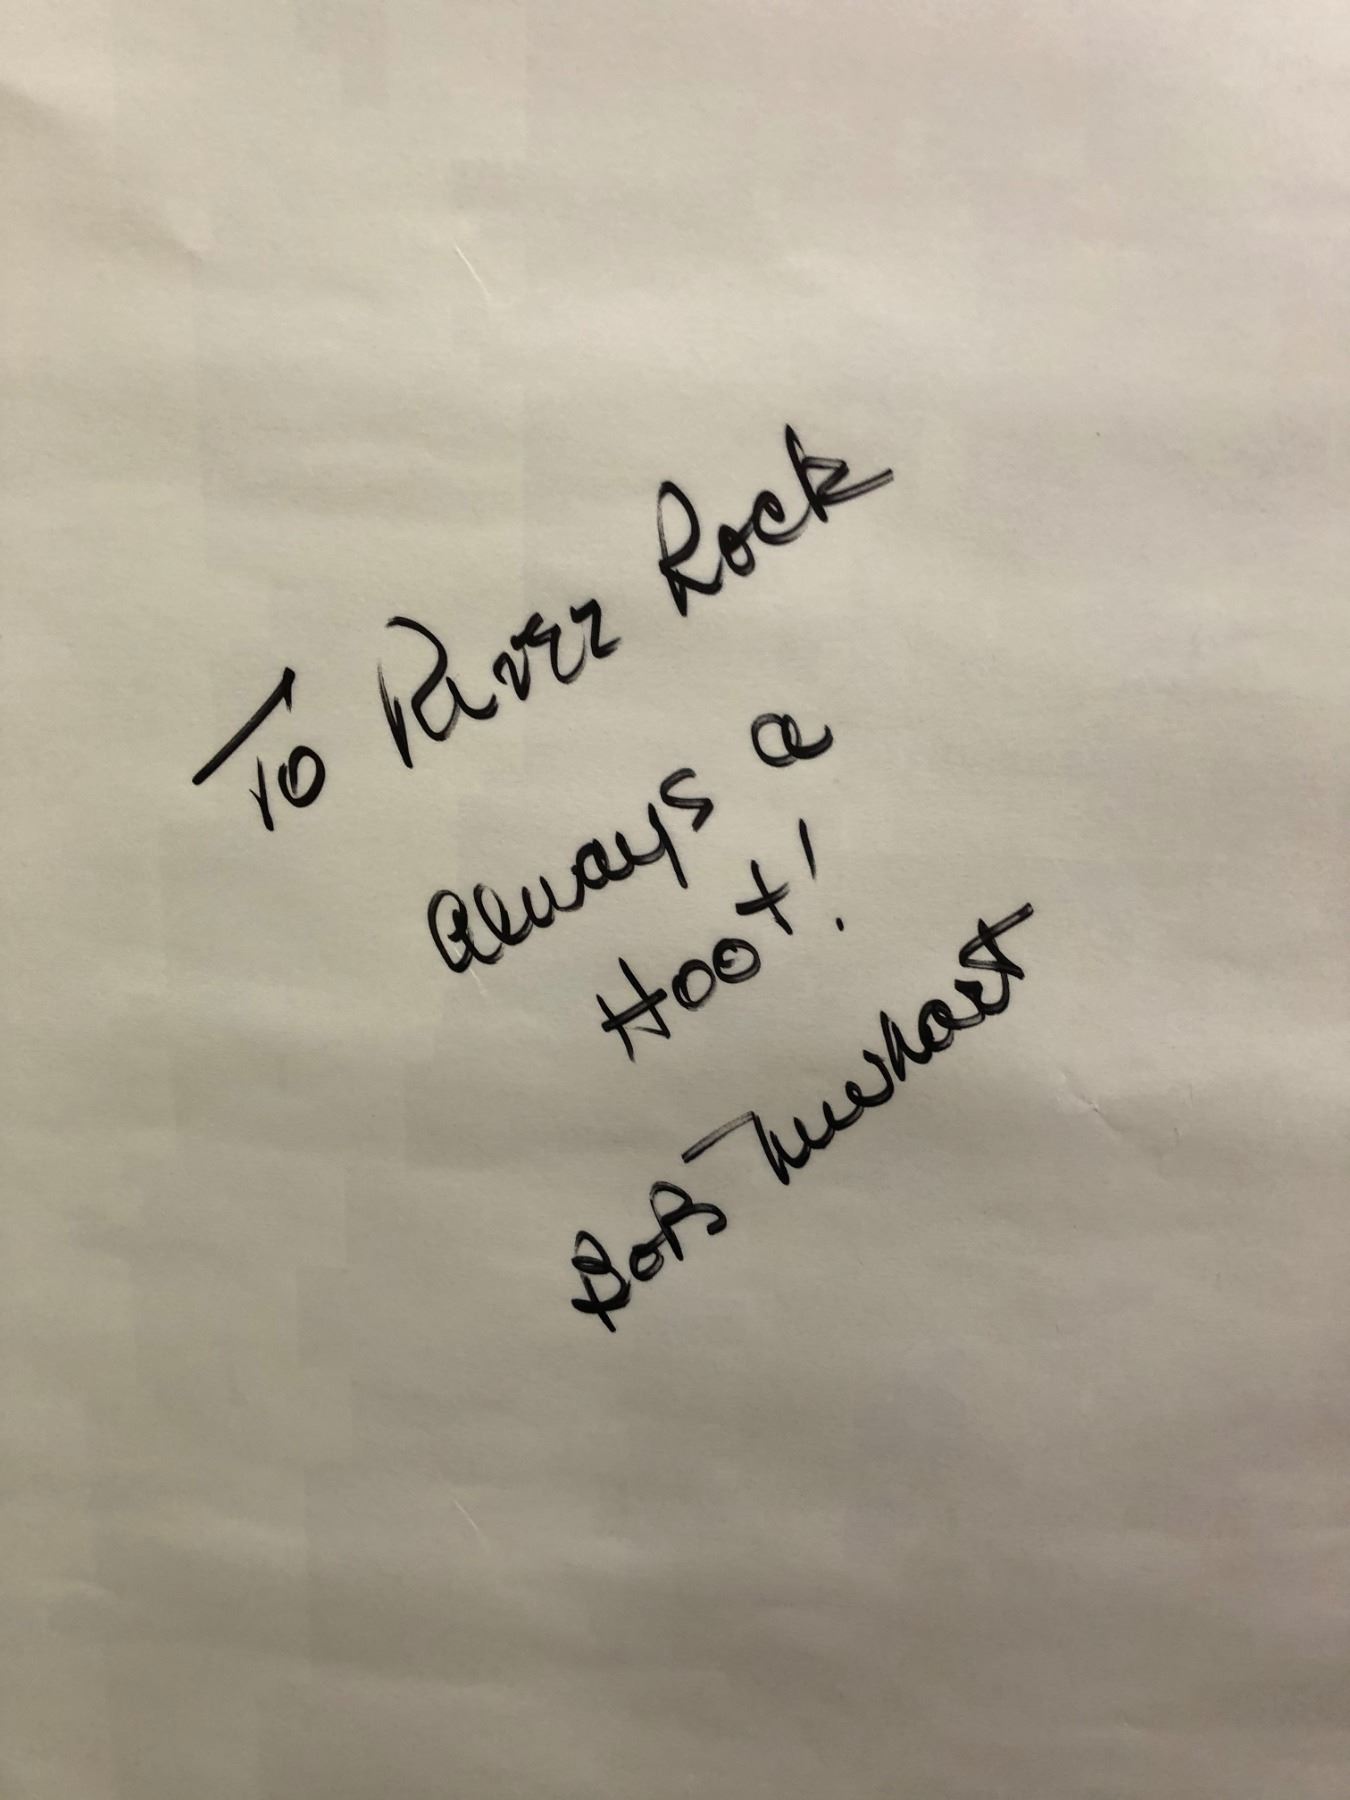 To River Rock
always a
Hoot!
Bob Newhart